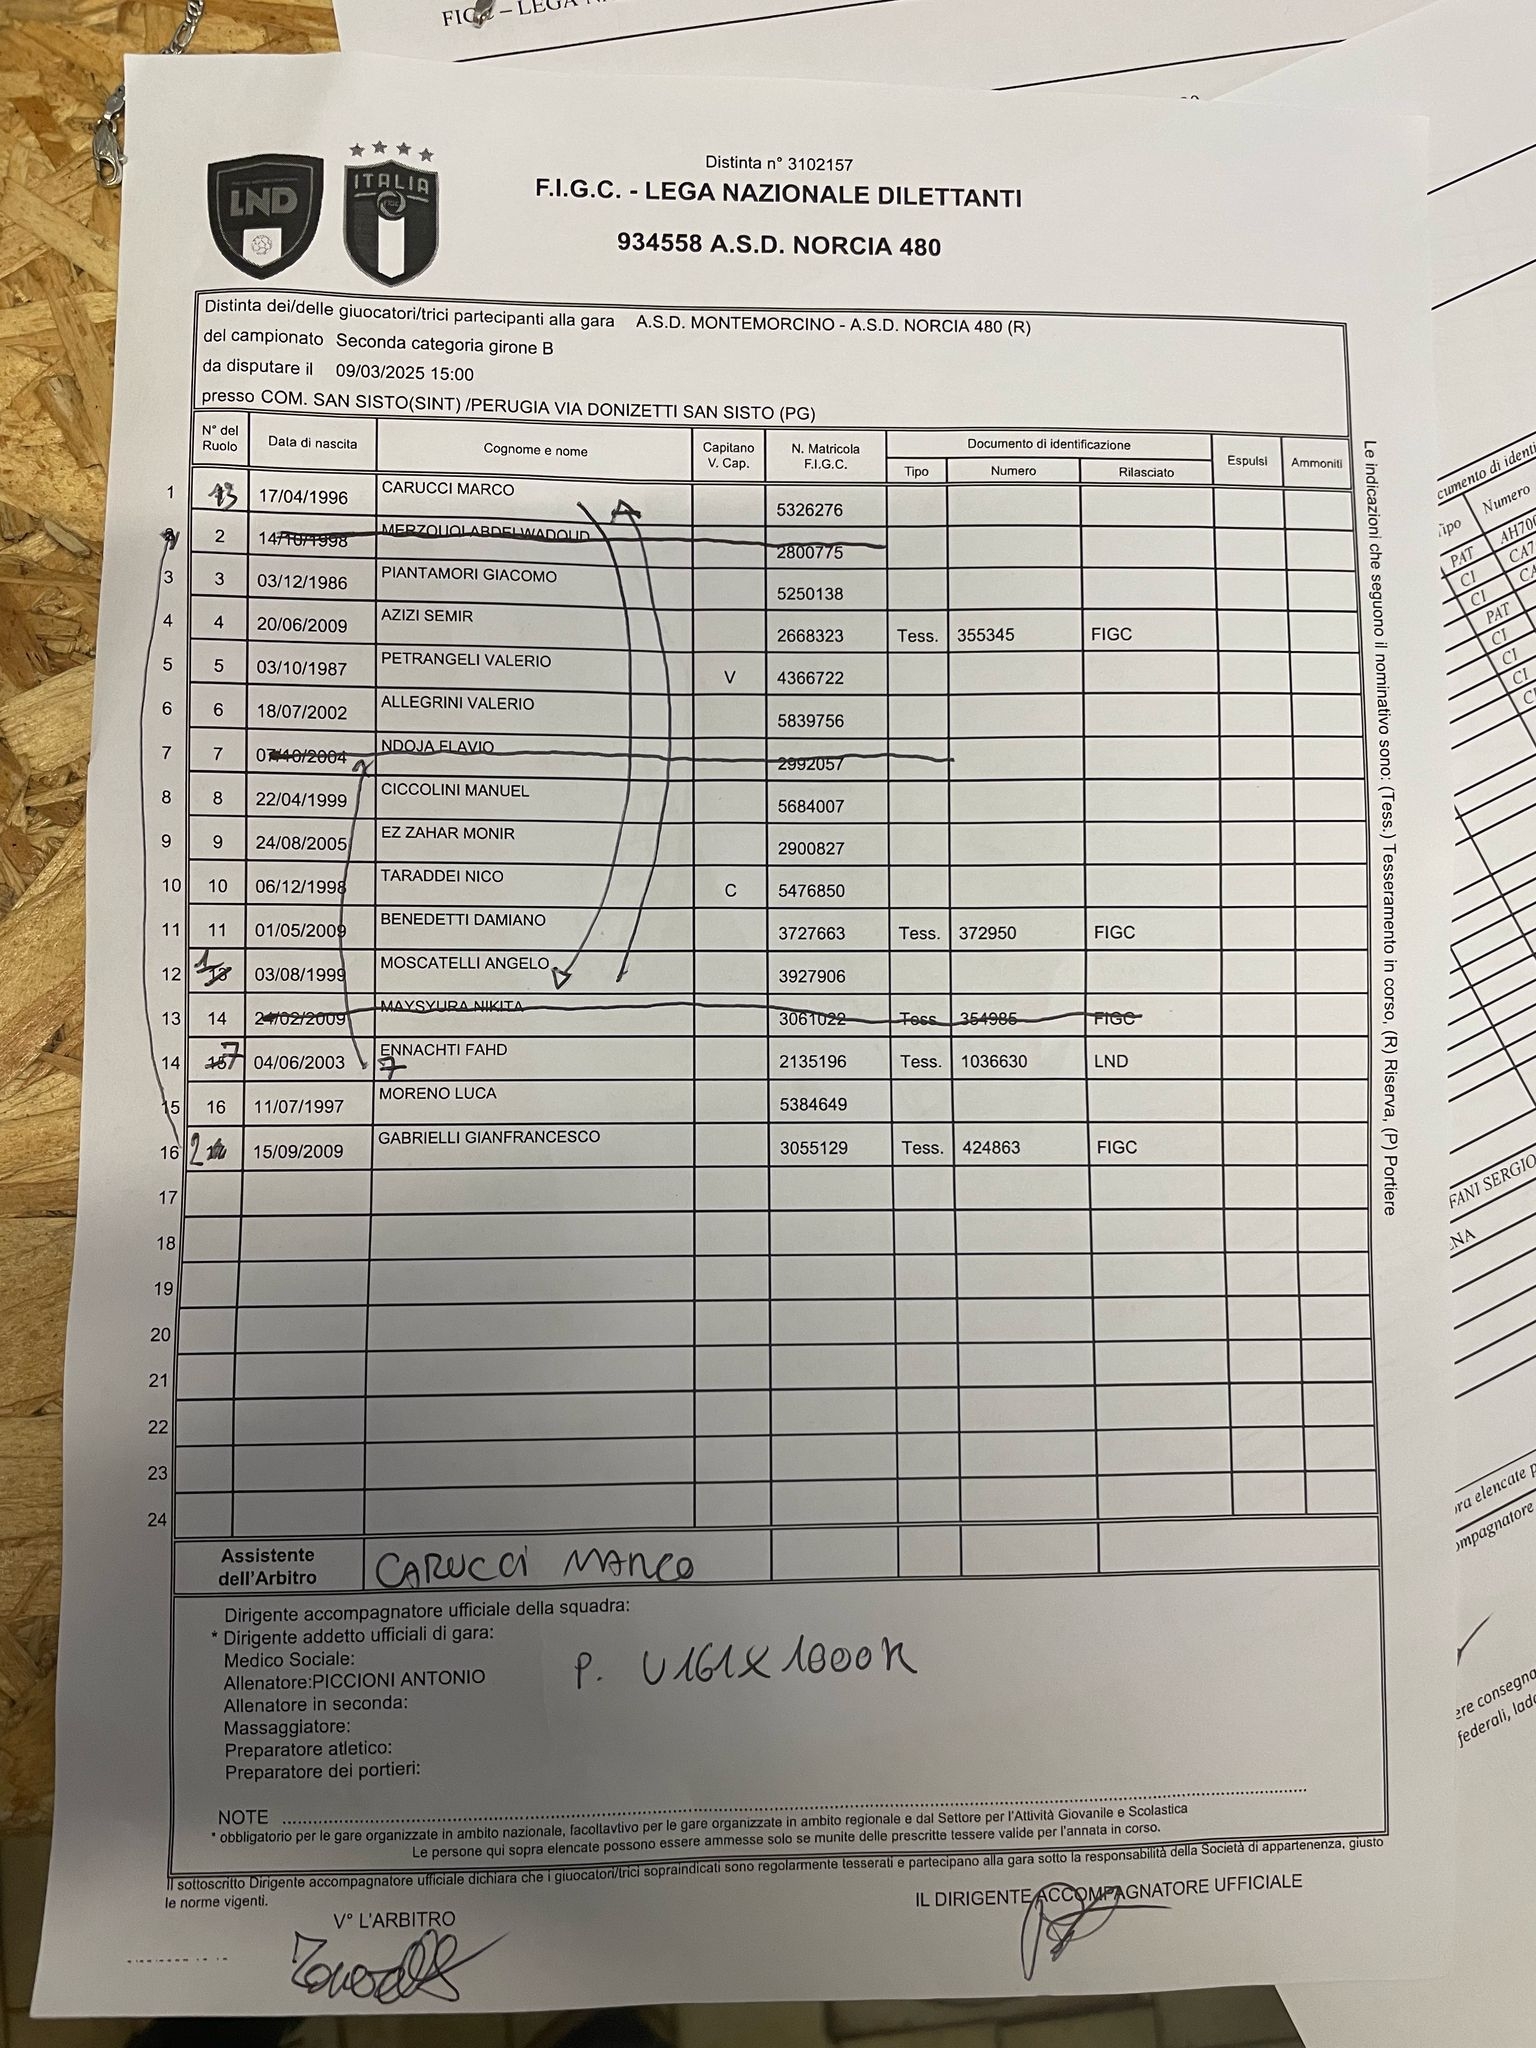 FIGC – LEGA
LND
ITALIA
FIGC
Distinta n° 3102157
F.I.G.C. - LEGA NAZIONALE DILETTANTI
934558 A.S.D. NORCIA 480
Distinta dei/delle giuocatori/trici partecipanti alla gara A.S.D. MONTEMORCINO - A.S.D. NORCIA 480 (R)
del campionato Seconda categoria girone B
da disputare il 09/03/2025 15:00
presso COM. SAN SISTO(SINT) /PERUGIA VIA DONIZETTI SAN SISTO (PG)
N° del Ruolo Data di nascita Cognome e nome Capitano V. Cap. N. Matricola F.I.G.C. Documento di identificazione Espulsi Ammoniti
Tipo Numero Rilasciato
1 13 17/04/1996 CARUCCI MARCO 5326276
2 14/10/1998 MERZOUQI ABDELWADOUD 2800775
3 3 03/12/1986 PIANTAMORI GIACOMO 5250138
4 4 20/06/2009 AZIZI SEMIR 2668323 Tess. 355345 FIGC
5 5 03/10/1987 PETRANGELI VALERIO V 4366722
6 6 18/07/2002 ALLEGRINI VALERIO 5839756
7 7 07/10/2004 NDOJA FLAVIO 2992057
8 8 22/04/1999 CICCOLINI MANUEL 5684007
9 9 24/08/2005 EZ ZAHAR MONIR 2900827
10 10 06/12/1998 TARADDEI NICO C 5476850
11 11 01/05/2009 BENEDETTI DAMIANO 3727663 Tess. 372950 FIGC
12 1 13 03/08/1999 MOSCATELLI ANGELO 3927906
13 14 24/02/2009 MAYSYURA NIKITA 3061022 Tess. 354985 FIGC
14 15 7 04/06/2003 ENNACHTI FAHD 7 2135196 Tess. 1036630 LND
15 16 11/07/1997 MORENO LUCA 5384649
16 2 15/09/2009 GABRIELLI GIANFRANCESCO 3055129 Tess. 424863 FIGC
17
18
19
20
21
22
23
24
Assistente dell'Arbitro CARUCCI MARCO
Dirigente accompagnatore ufficiale della squadra:
* Dirigente addetto ufficiali di gara:
Medico Sociale:
Allenatore:PICCIONI ANTONIO
Allenatore in seconda:
Massaggiatore:
Preparatore atletico:
Preparatore dei portieri:
P. U161X1000R
NOTE
* obbligatorio per le gare organizzate in ambito nazionale, facoltavtivo per le gare organizzate in ambito regionale e dal Settore per l'Attività Giovanile e Scolastica
Le persone qui sopra elencate possono essere ammesse solo se munite delle prescritte tessere valide per l'annata in corso.
Il sottoscritto Dirigente accompagnatore ufficiale dichiara che i giuocatori/trici sopraindicati sono regolarmente tesserati e partecipano alla gara sotto la responsabilità della Società di appartenenza, giusto
le norme vigenti.
V° L'ARBITRO
IL DIRIGENTE ACCOMPAGNATORE UFFICIALE
Le indicazioni che seguono il nominativo sono: (Tess.) Tesseramento in corso, (R) Riserva, (P) Portiere
Numero
PAT AH700
CI CA7
CI CA
PAT
CI
CI
CI
FANI SERGIO
elencate